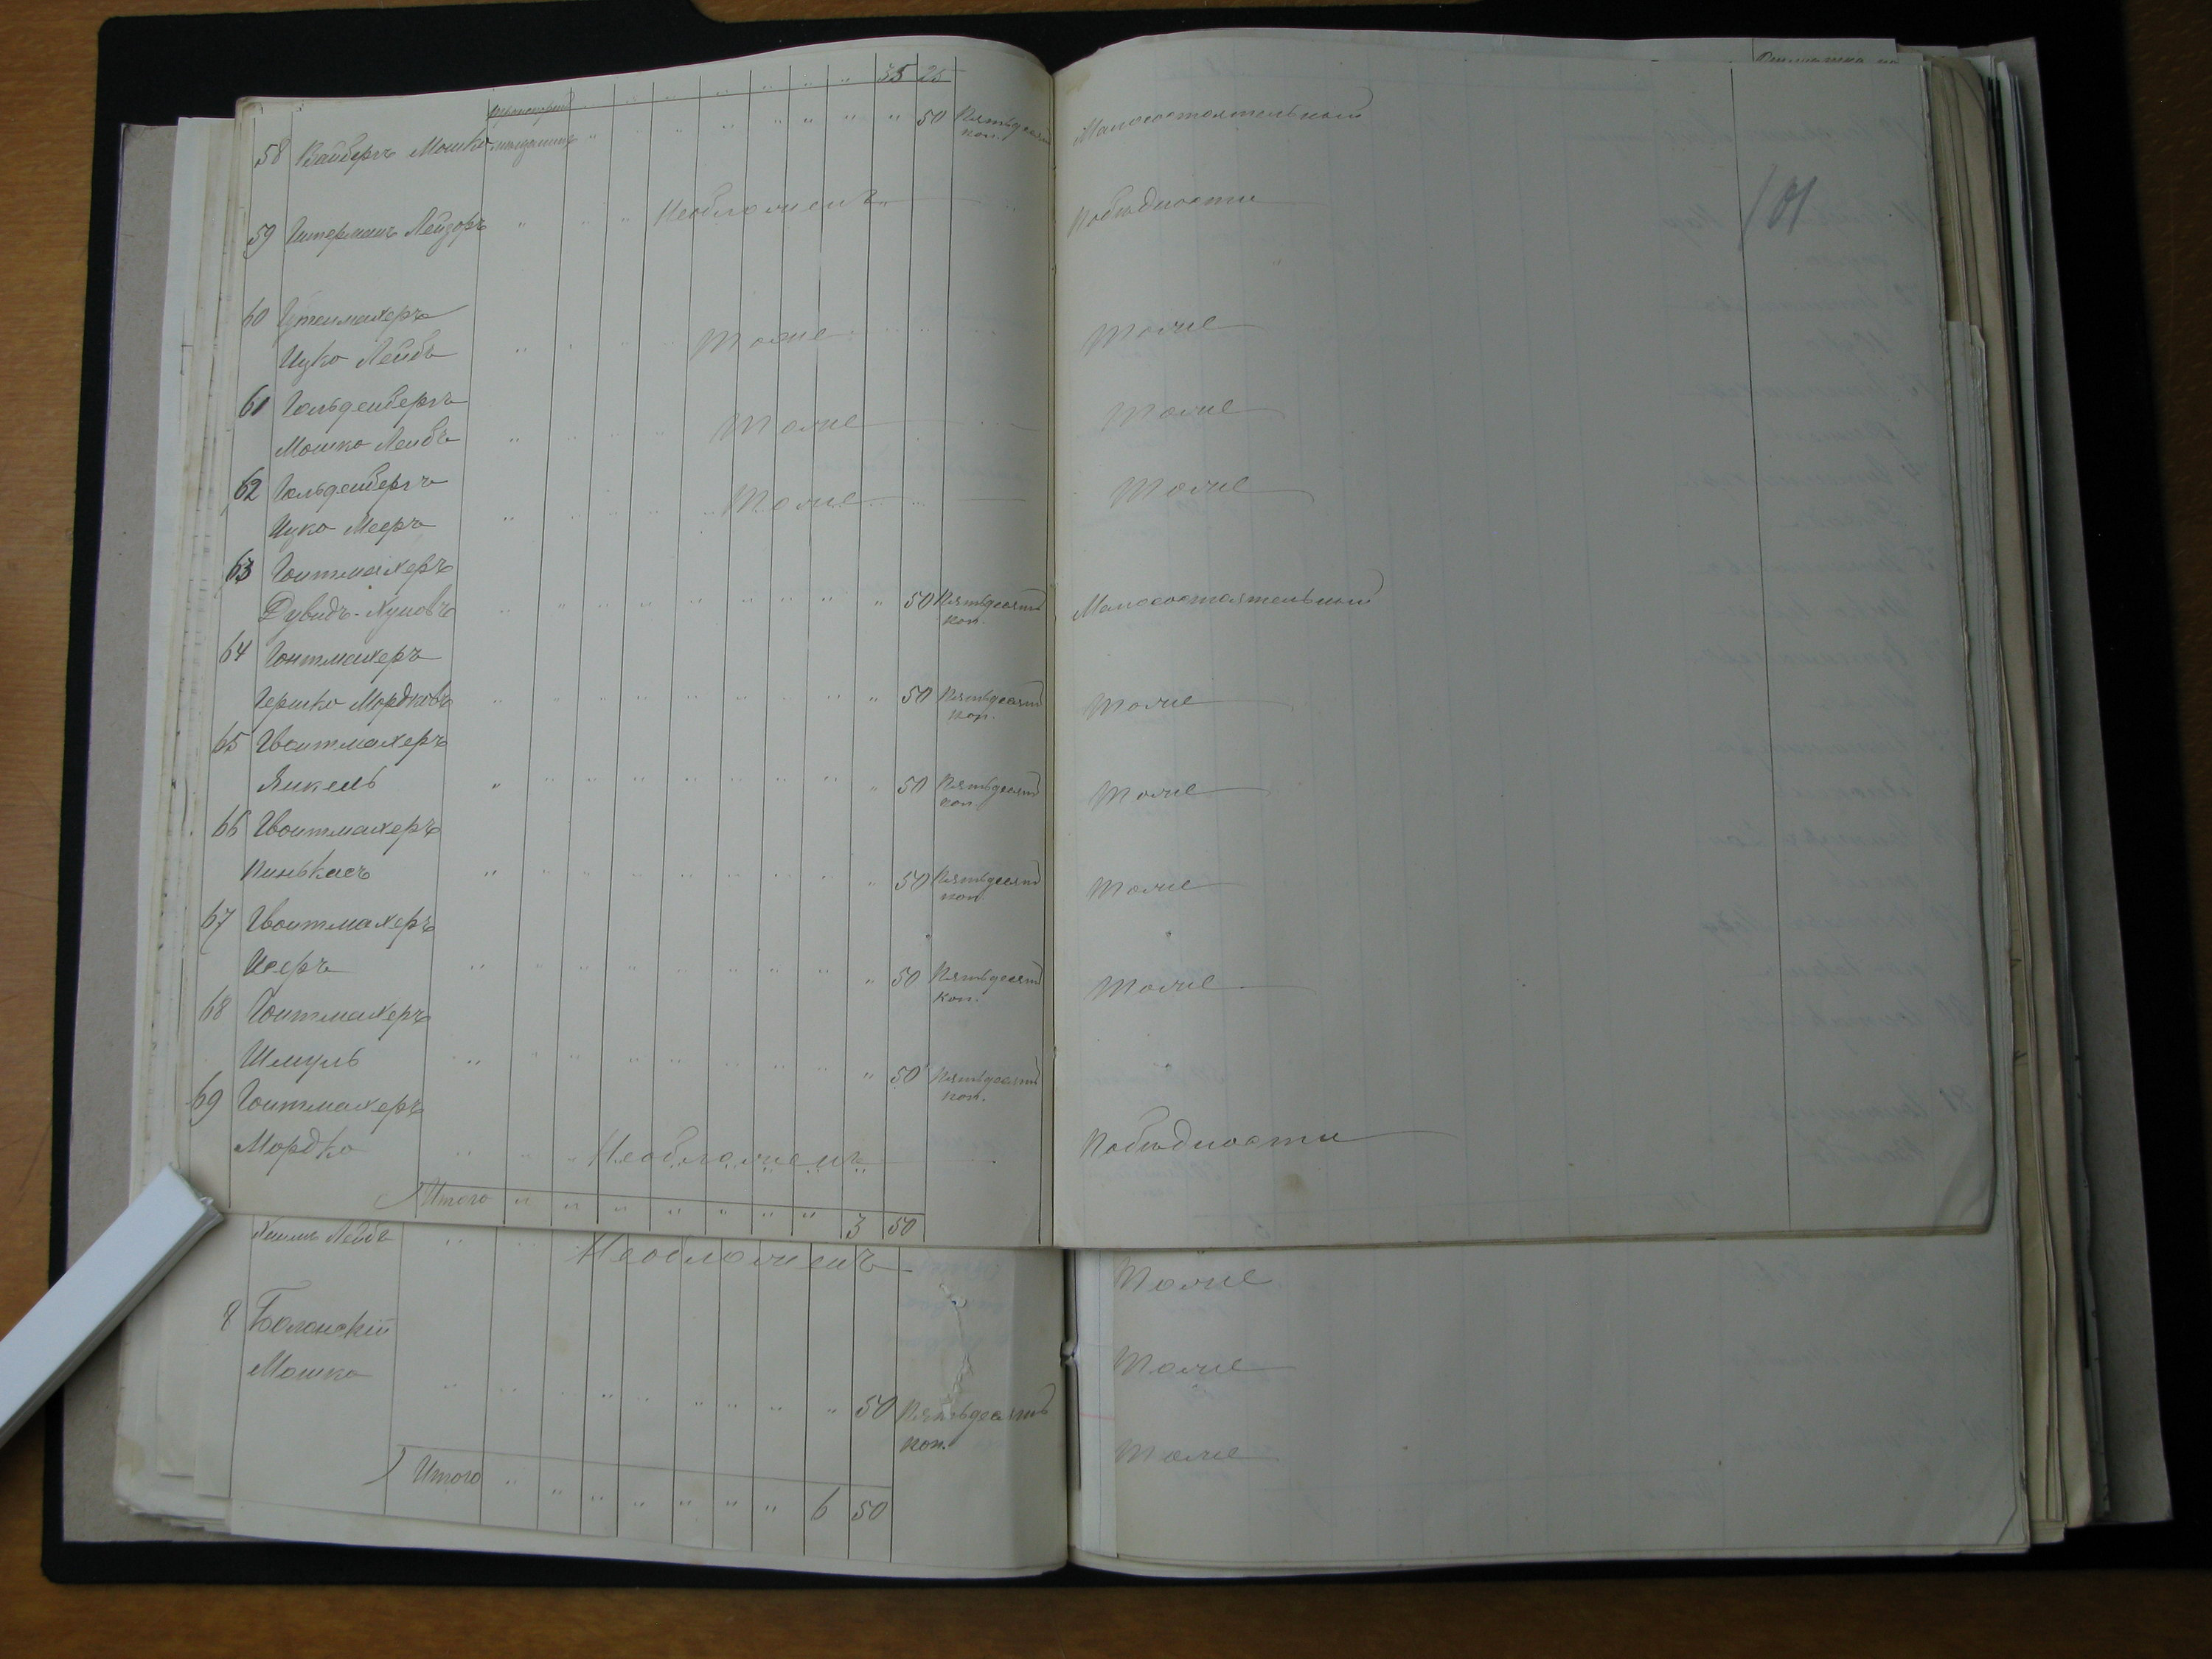 35 25
58 Вайбергъ Мошко мѣщанинъ " " " " " " " " 50 Пятьдесятъ Малосостоятельный
коп.
59 Гитерманъ Лейзоръ " " " Необложенъ По бѣдности
101
60 Гутенмахеръ
Ицко Лейбъ " " Тоже Тоже
61 Гольденбергъ
Мошко Лейбъ " " Тоже Тоже
62 Гольденбергъ
Ицко Мееръ " " Тоже Тоже
63 Гонтмахеръ
Дувидъ-Нуховъ " " " " " " " " " 50 Пятьдесятъ Малосостоятельный
коп.
64 Гонтмахеръ
Гершко Мордковъ " " " " " " " " " 50 Пятьдесятъ Тоже
коп.
65 Гвонтмахеръ
Янкель " " " " " " " " " 50 Пятьдесятъ Тоже
коп.
66 Гвонтмахеръ
Пинькасъ " " " " " " " " " 50 Пятьдесятъ Тоже
коп.
67 Гвонтмахеръ
Исеръ " " " " " " " " " 50 Пятьдесятъ Тоже
коп.
68 Гонтмахеръ
Шмуль " " " " " " " " " 50 Пятьдесятъ "
коп.
69 Гонтмахеръ
Мордко " " " Необложенъ По бѣдности
Итого " " " " " " " 3 50
Лейбъ " " Необложенъ Тоже
8 Болонскій
Мошко " " " " " " " " " 50 Пятьдесятъ Тоже
коп.
Тоже
Итого " " " " " " " 6 50